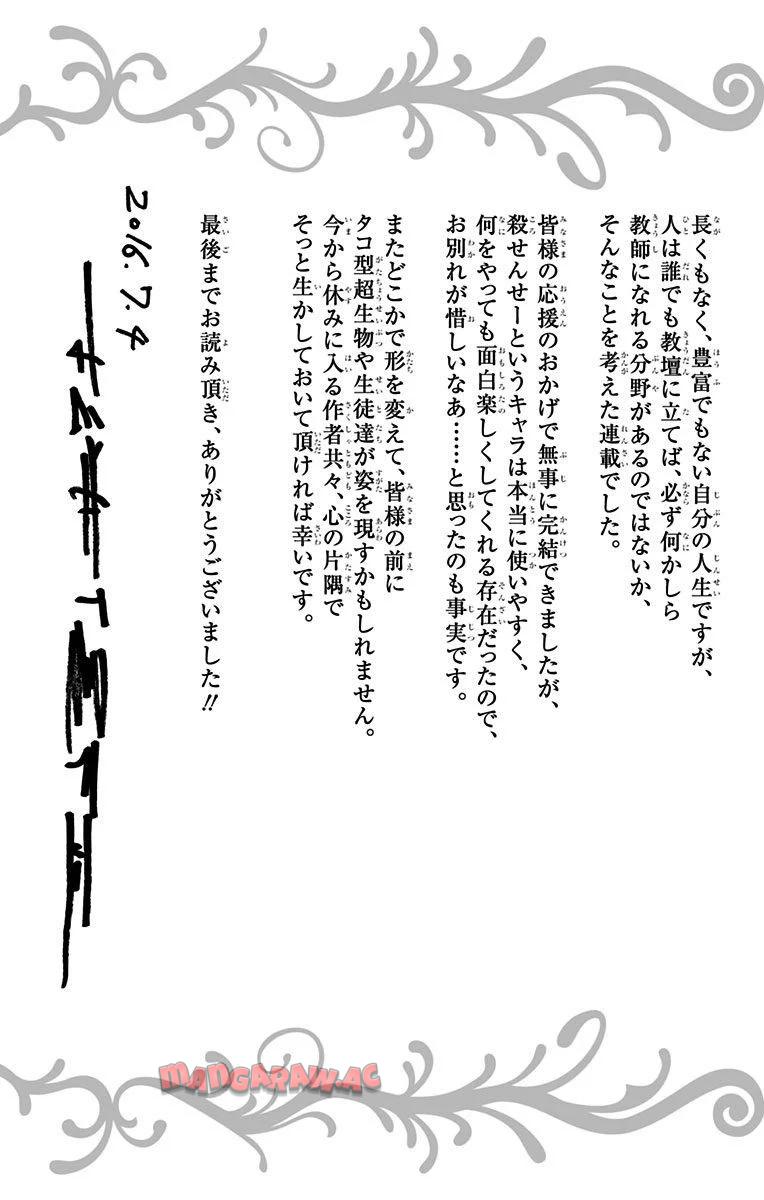 長くもなく、豊富でもない自分の人生ですが、
人は誰でも教壇に立てば、必ず何かしら
教師になれる分野があるのではないか、
そんなことを考えた連載でした。
皆様の応援のおかげで無事に完結できましたが、
殺せんせーというキャラは本当に使いやすく、
何をやっても面白楽しくしてくれる存在だったので、
お別れが惜しいなあ……と思ったのも事実です。
またどこかで形を変えて、皆様の前に
タコ型超生物や生徒達が姿を現すかもしれません。
今から休みに入る作者共々、心の片隅で
そっと生かしておいて頂ければ幸いです。
最後までお読み頂き、ありがとうございました!!
2016.7.4
MANGARAW.AC